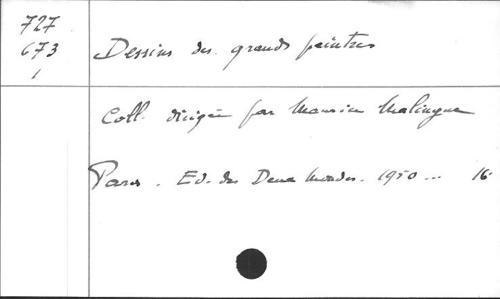 727
673
1
Dessins des grands peintres
Coll. dirigée par Maurice Malingue
Paris. Ed. des Deux Mondes. 1950 ... 16